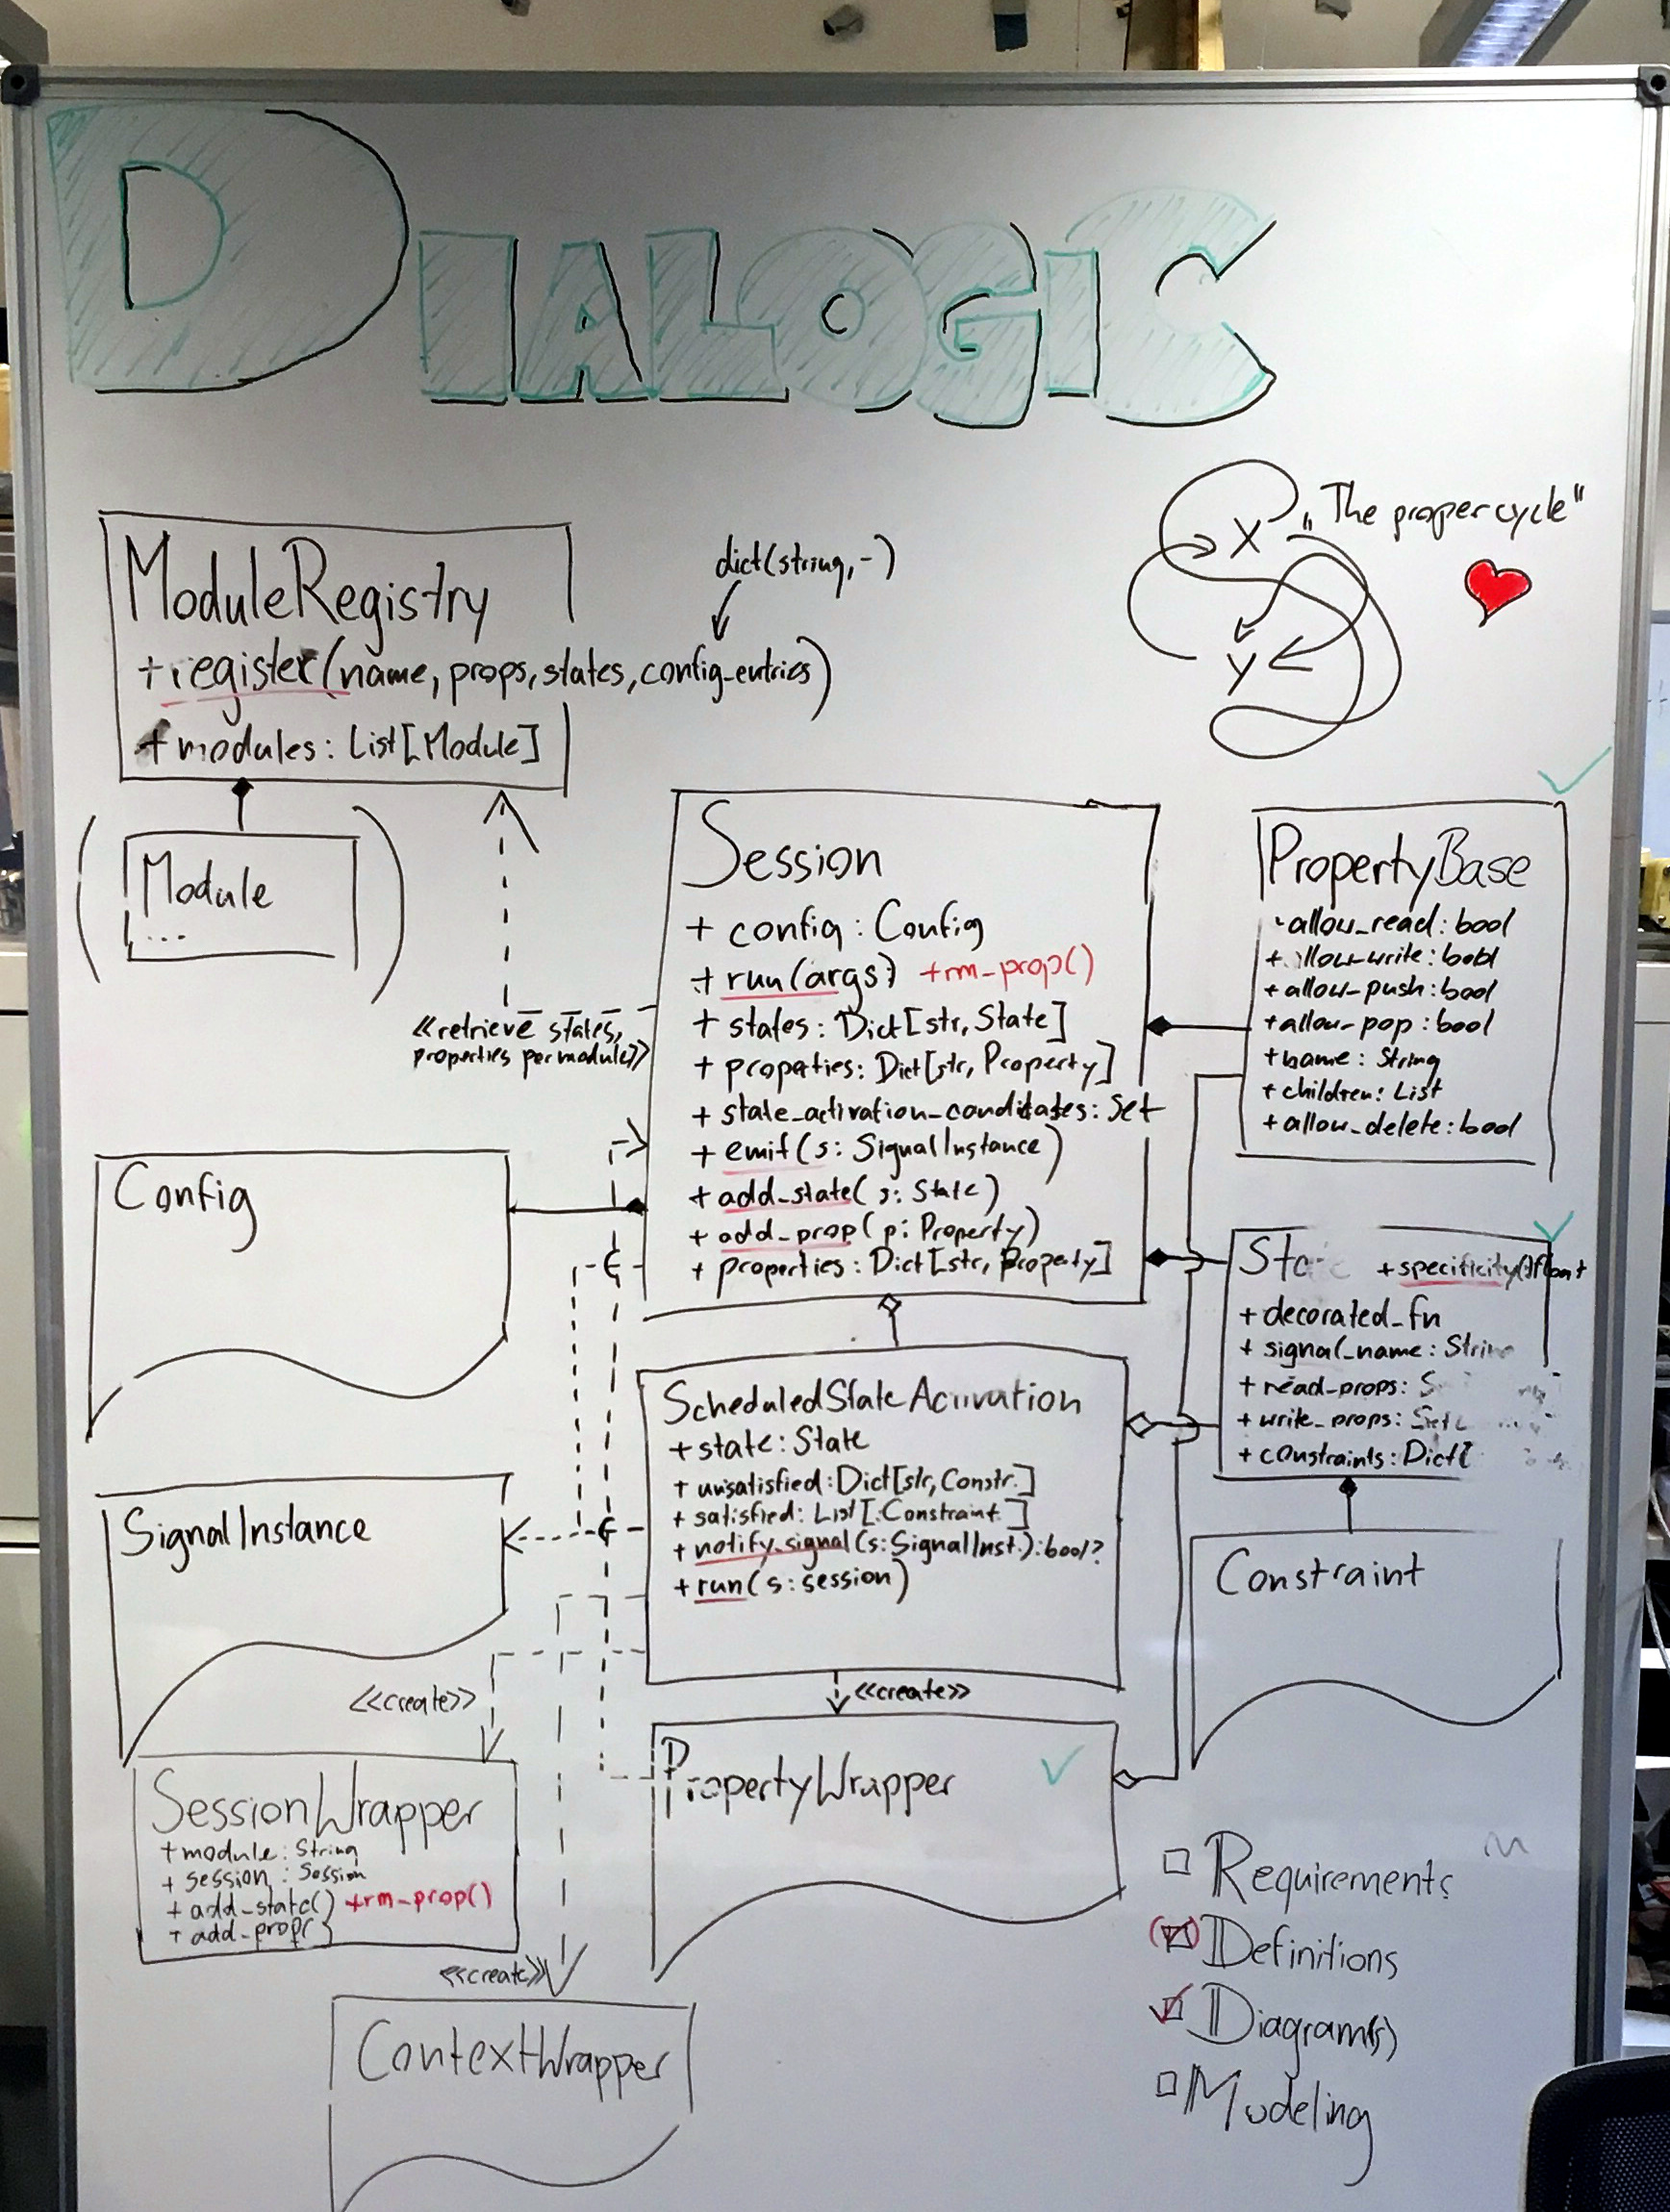 DIALOGIC
„The proper cycle"
X
Y
dict(string, -)
ModuleRegistry
+ register(name, props, states, config_entries)
+ modules: List[Module]
Module
...
Session
+ config: Config
+ run(args) +rm_prop()
+ states: Dict[str, State]
+ properties: Dict[str, Property]
+ state_activation_candidates: Set
+ emit(s: SignalInstance)
+ add_state(s: State)
+ add_prop(p: Property)
+ properties: Dict[str, Property]
PropertyBase
allow_read: bool
+ allow-write: bool
+ allow-push: bool
+ allow-pop: bool
+ name: String
+ children: List
+ allow_delete: bool
<<retrieve states,
properties per module>>
Config
+ specificity():float
+ decorated_fn
+ signal_name: String
+ read-props:
+ write_props: Set
+ constraints: Dict[
ScheduledStateActivation
+ state: State
+ unsatisfied: Dict[str, Constr.]
+ satisfied: List[Constraint]
+ notify-signal(s: SignalInst.): bool?
+ run(s: session)
SignalInstance
Constraint
<<create>>
<<create>>
SessionWrapper
+ module: String
+ session: Session
+ add_state() +rm-prop()
+ add_prop()
PropertyWrapper
<<create>>
ContextWrapper
Requirements
Definitions
Diagram(s)
Modeling